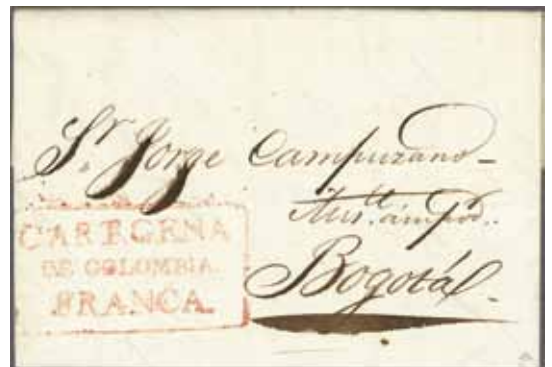 Sr. Jorge Campuzano
CARTEGENA
DE COLOMBIA.
FRANCA.
Bogotá.